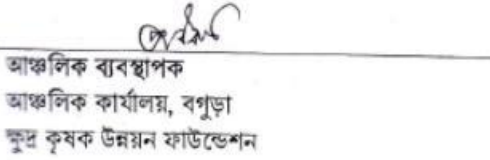 আঞ্চলিক ব্যবস্থাপক
আঞ্চলিক কার্যালয়, বগুড়া
ক্ষুদ্র কৃষক উন্নয়ন ফাউন্ডেশন